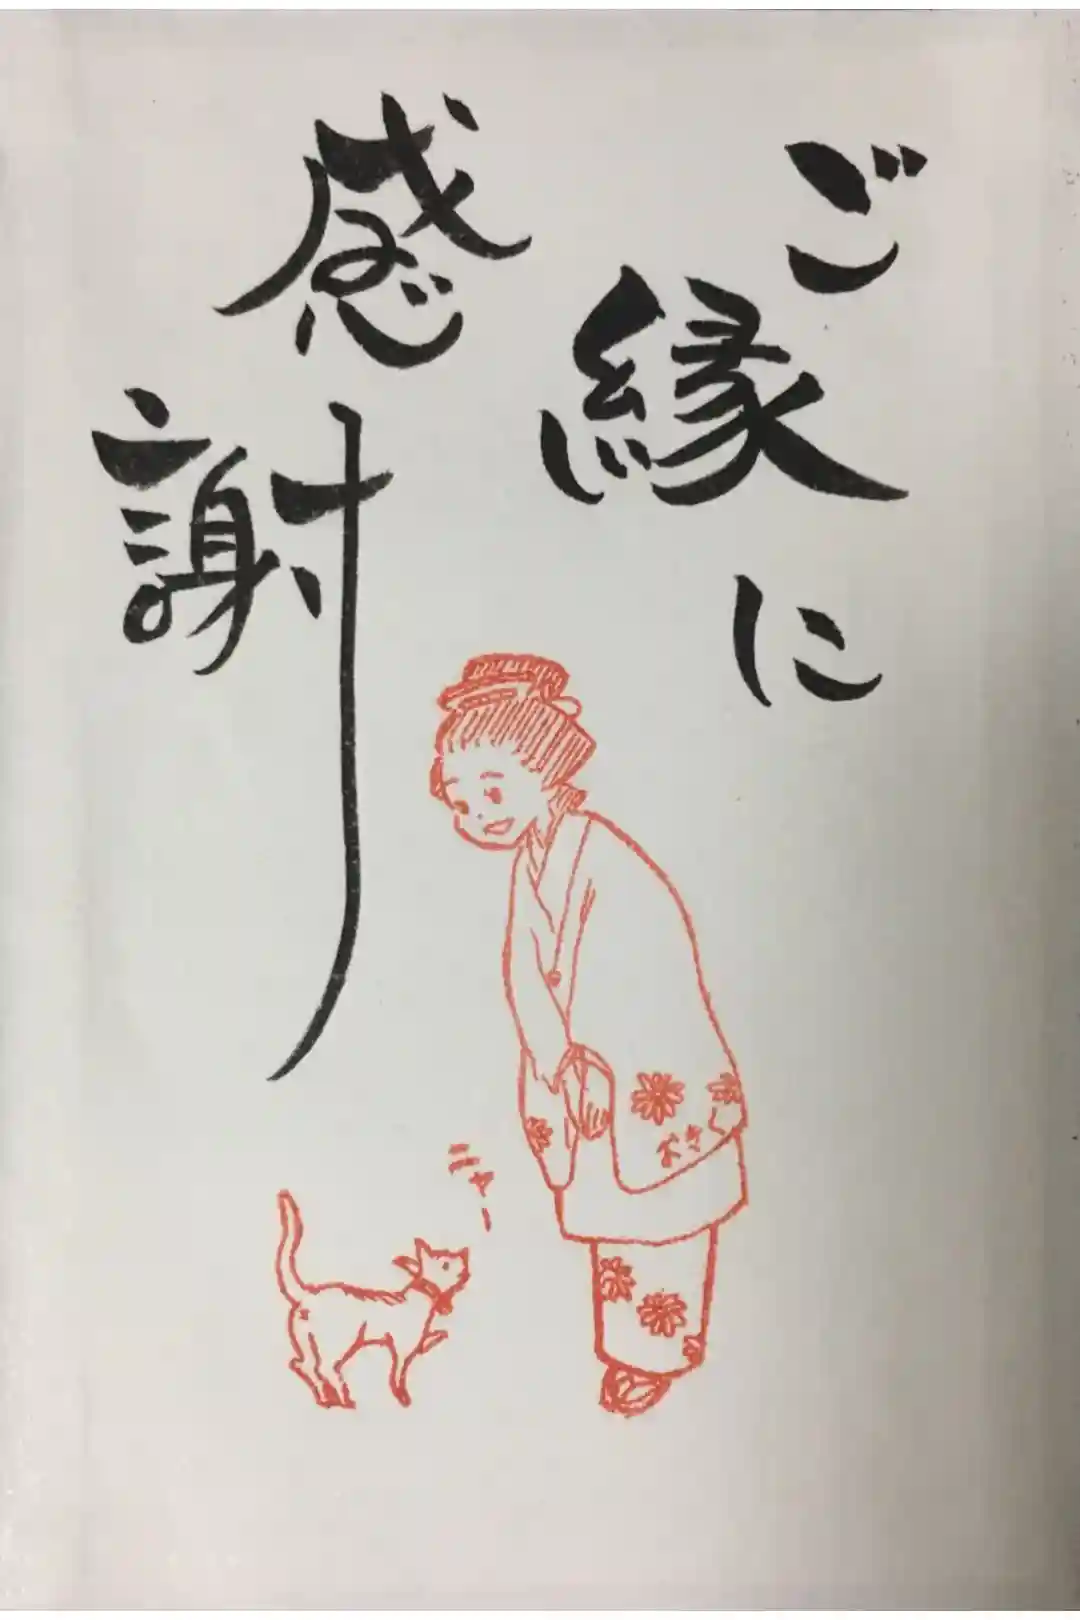 ご縁に
感謝
おきく
ニャー